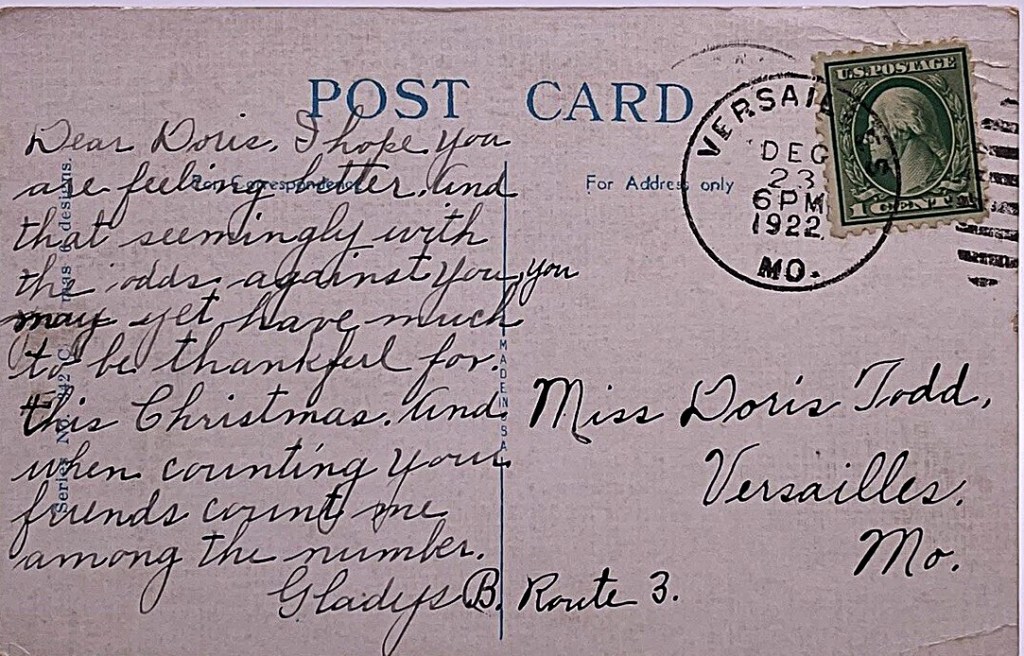 POST CARD
For Correspondence
For Address only
Dear Doris. I hope you
are feeling better. And
that seemingly with
the odds against you, you
may yet have much
to be thankful for.
this Christmas. And
when counting your
friends count me
among the number.
Gladys B.
Miss Doris Todd,
Versailles,
Mo.
Route 3.
VERSAILLES
DEC
23
6 PM
1922
MO.
U.S. POSTAGE
MADE IN USA
designs.
Series No.